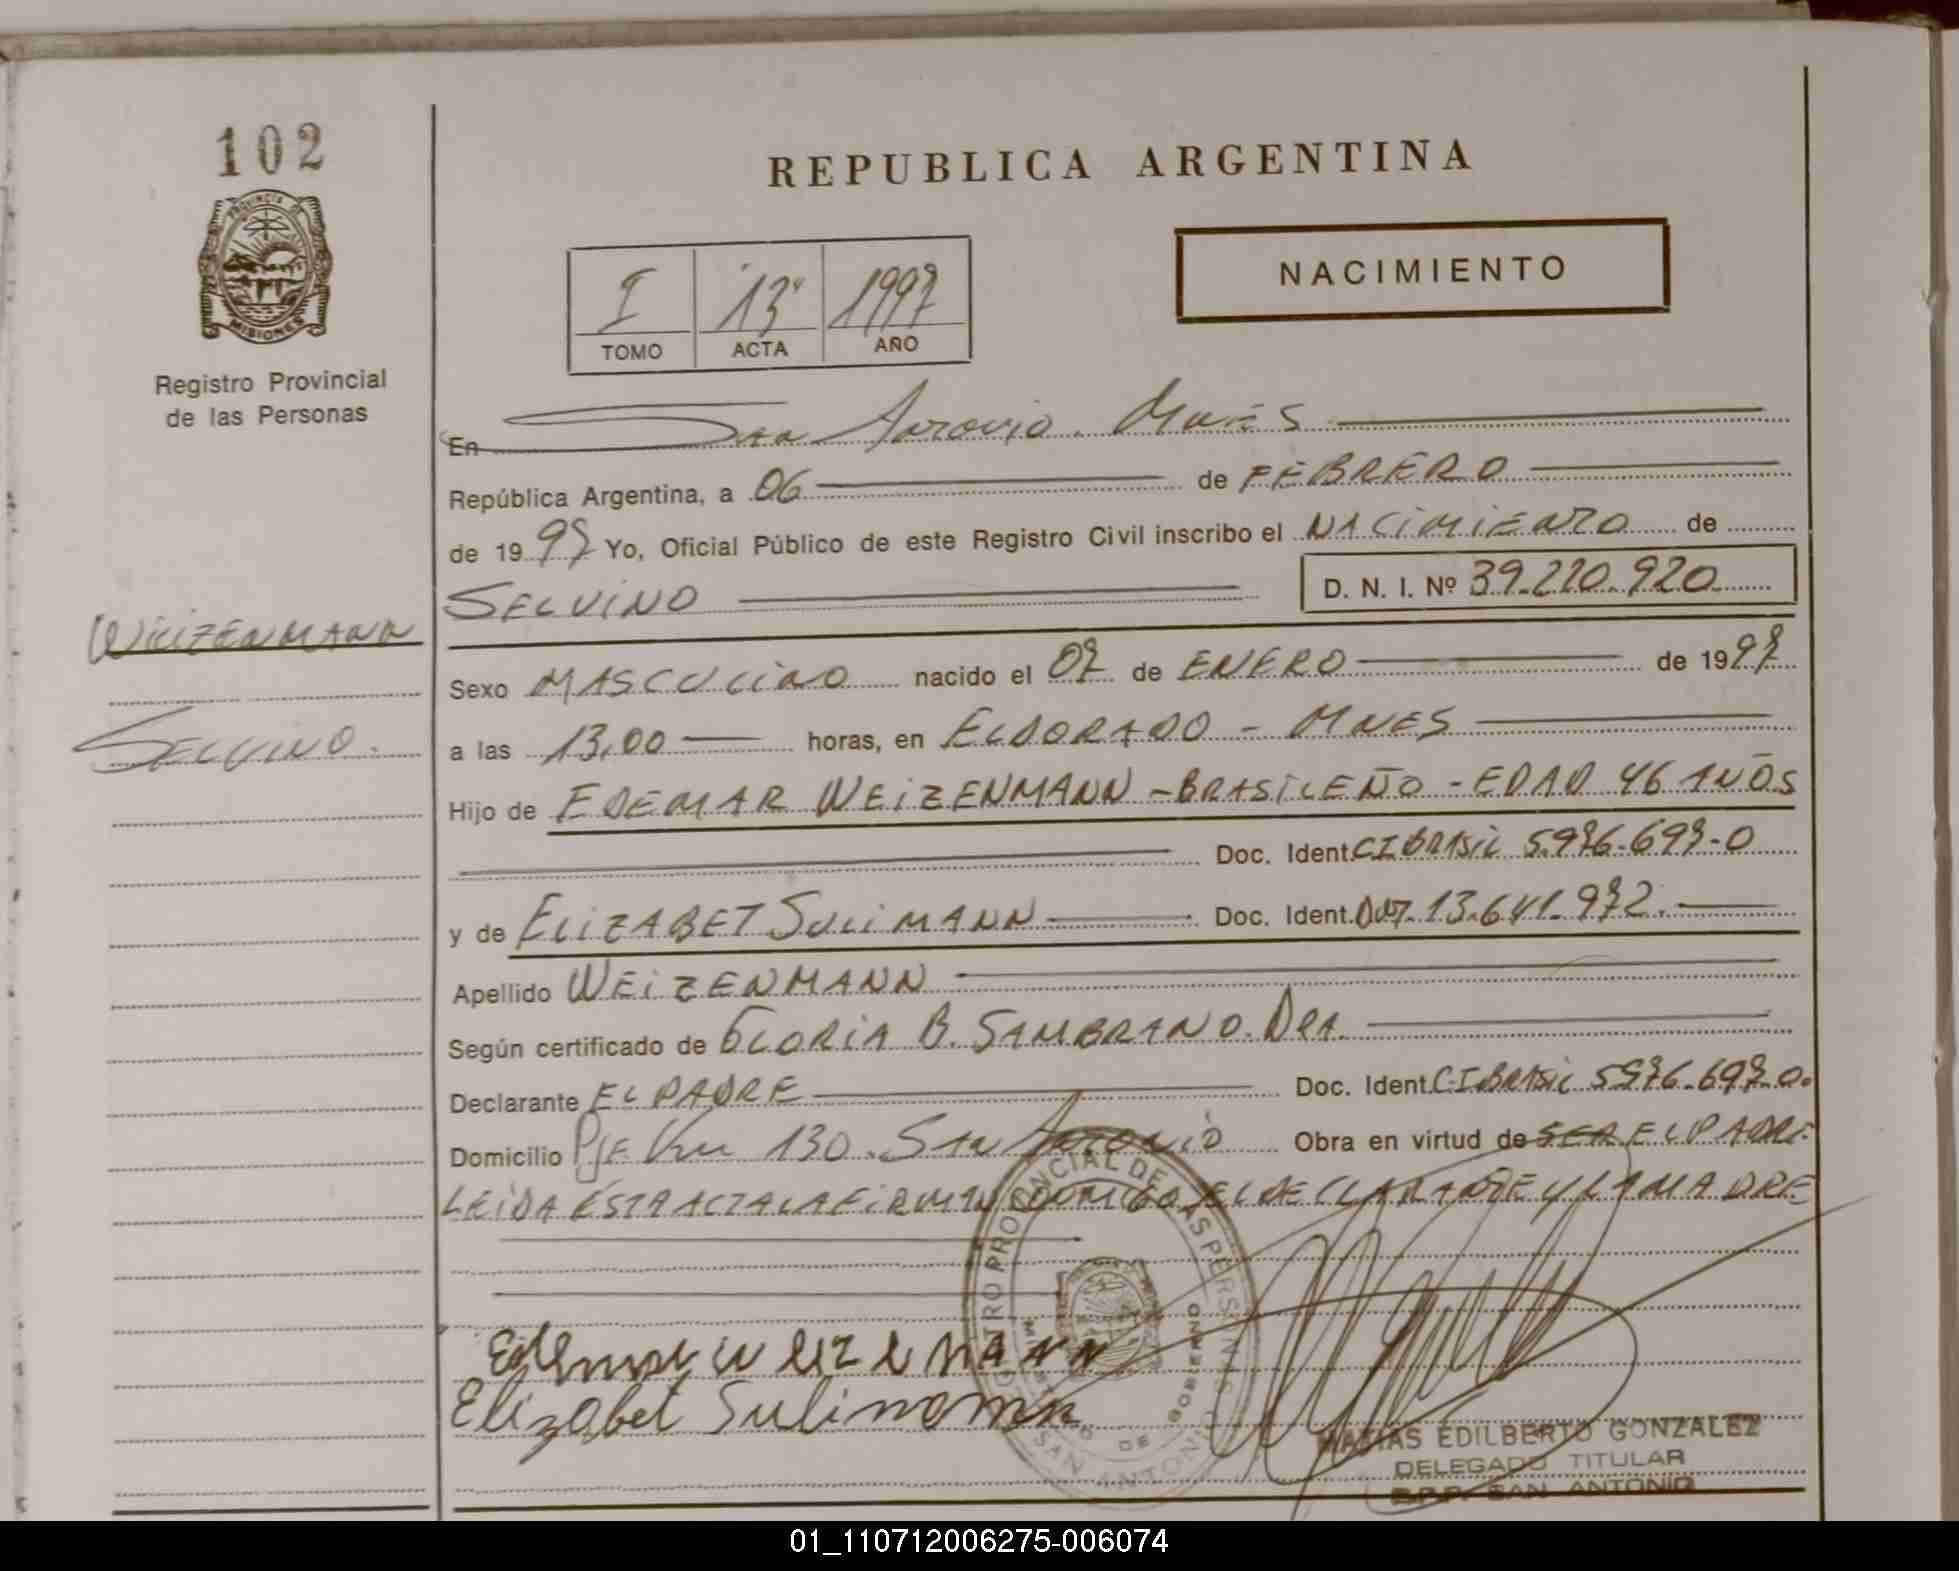 102
REPUBLICA ARGENTINA
PROVINCIA DE
MISIONES
NACIMIENTO
I 13 1997
TOMO ACTA AÑO
Registro Provincial
de las Personas
En San Antonio. Mnes
República Argentina, a 06 de FEBRERO
de 1997 Yo, Oficial Público de este Registro Civil inscribo el NACIMIENTO de
SELVINO D. N. I. Nº 39.220.920
WEIZENMANN
SELVINO.
Sexo MASCULINO nacido el 07 de ENERO de 1997
a las 13,00 horas, en ELDORADO - MNES
Hijo de EDEMAR WEIZENMANN - BRASILEÑO - EDAD 46 AÑOS
Doc. Ident. CI BRASIL 5.976.697-0
y de ELIZABET SULIMANN Doc. Ident. DNI. 13.641.972.
Apellido WEIZENMANN
Según certificado de GLORIA B. SAMBRANO. DRA.
Declarante EL PADRE Doc. Ident. C.I. BRASIL 5976.697.0.
Domicilio PJE Km 130. San Antonio Obra en virtud de SER EL PADRE.
LEIDA ESTA ACTA LA FIRMAN CONMIGO EL DECLARANTE Y LA MADRE
REGISTRO PROVINCIAL DE LAS PERSONAS
MINISTERIO DE GOBIERNO
SAN ANTONIO
Edemar weizemann
Elizabet Sulimann
MATIAS EDILBERTO GONZALEZ
DELEGADO TITULAR
R.P.P. SAN ANTONIO
01_110712006275-006074